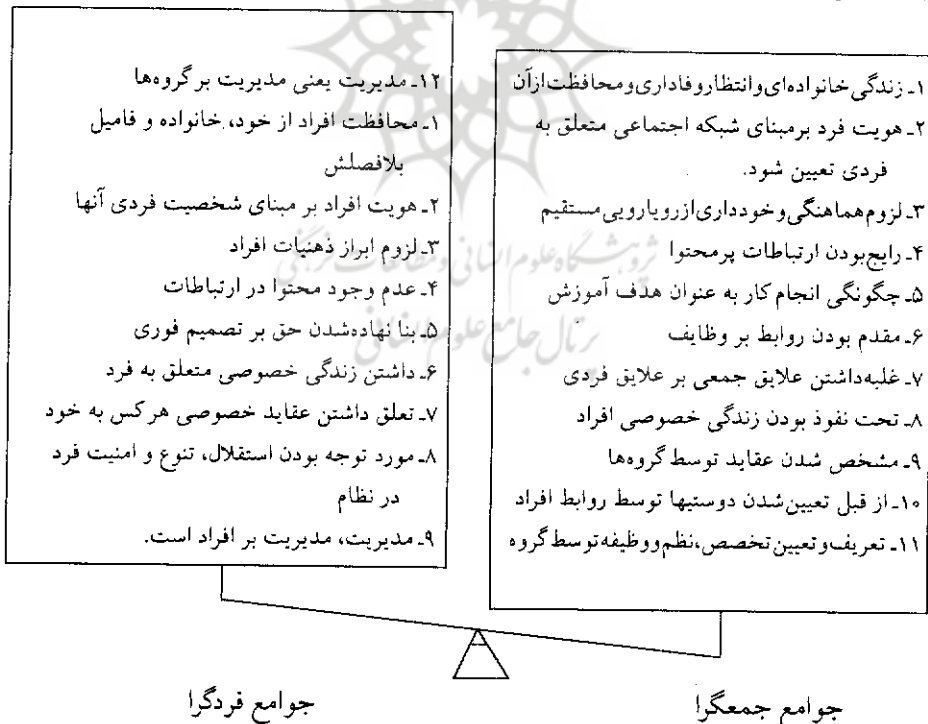 ۱ـ زندگی خانواده‌ای وانتظار وفاداری ومحافظت ازآن
۲ـ هویت فرد برمبنای شبکه اجتماعی متعلق به
فردی تعیین شود.
۳ـ لزوم هماهنگی وخودداری ازرویارویی مستقیم
۴ـ رایج‌بودن ارتباطات پرمحتوا
۵ـ چگونگی انجام کار به عنوان هدف آموزش
۶ـ مقدم بودن روابط بر وظایف
۷ـ غلبه‌داشتن علایق جمعی بر علایق فردی
۸ـ تحت نفوذ بودن زندگی خصوصی افراد
۹ـ مشخص شدن عقاید توسط گروه‌ها
۱۰ـ از قبل تعیین‌شدن دوستیها توسط روابط افراد
۱۱ـ تعریف وتعیین تخصص،نظم ووظیفه توسط گروه
۱۲ـ مدیریت یعنی مدیریت بر گروه‌ها
۱ـ محافظت افراد از خود، خانواده و فامیل
بلافصلش
۲ـ هویت افراد بر مبنای شخصیت فردی آنها
۳ـ لزوم ابراز ذهنیات افراد
۴ـ عدم وجود محتوا در ارتباطات
۵ـ بنا نهاده‌شدن حق بر تصمیم فوری
۶ـ داشتن زندگی خصوصی متعلق به فرد
۷ـ تعلق داشتن عقاید خصوصی هرکس به خود
۸ـ مورد توجه بودن استقلال، تنوع و امنیت فرد
در نظام
۹ـ مدیریت، مدیریت بر افراد است.
پژوهشگاه علوم انسانی و مطالعات فرهنگی
پرتال جامع علوم انسانی
جوامع جمعگرا
جوامع فردگرا